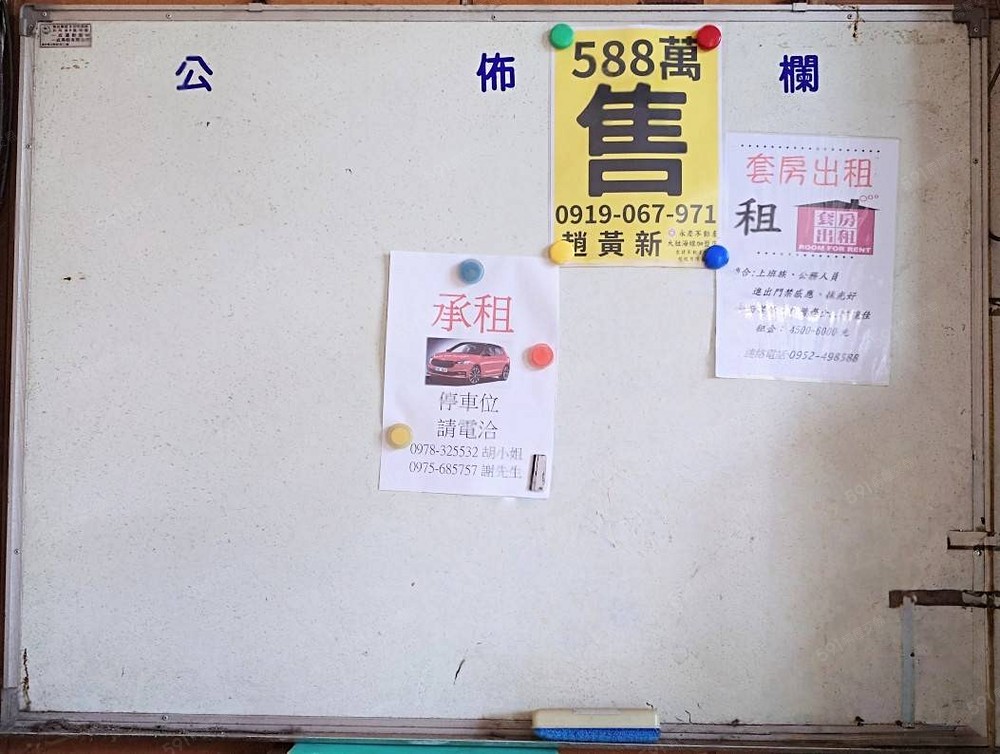 公佈欄
588萬
售
0919-067-971
趙黃新
永慶不動產
承租
停車位
請電洽
0978-325532 胡小姐
0975-685757 謝先生
套房出租
租
套房
出租
ROOM FOR RENT
合:上班族、公務人員
進出門禁感應、採光好
租金: 4500-6000元
連絡電話:0952-498588